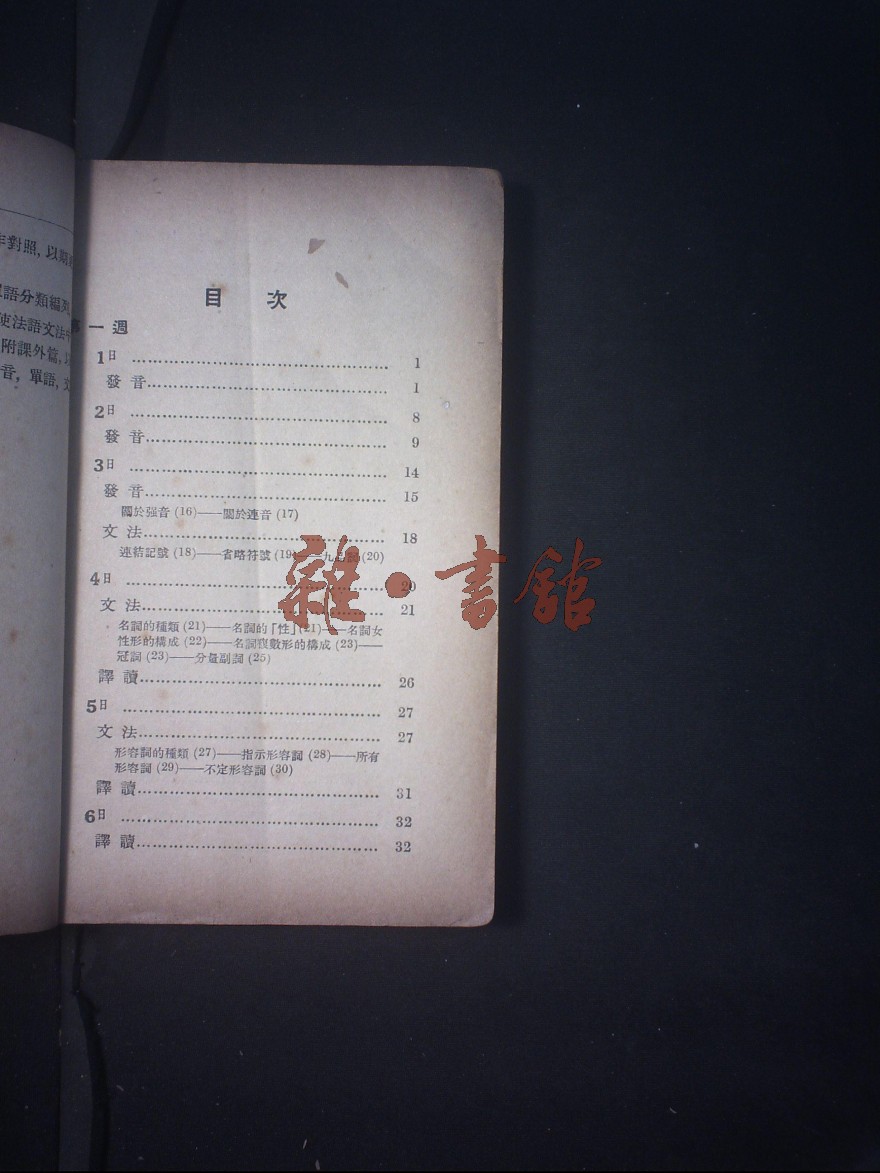 作對照, 以期
語分類編列
使法語文法中
附課外篇,
音, 單語, 文
目 次
第一週
1日 ……………………………………… 1
發 音……………………………………… 1
2日 ……………………………………… 8
發 音……………………………………… 9
3日 ……………………………………… 14
發 音……………………………………… 15
關於强音 (16)——關於連音 (17)
文 法……………………………………… 18
連結記號 (18)——省略符號 (19)——九品詞 (20)
4日 ……………………………………… 20
文 法……………………………………… 21
名詞的種類 (21)——名詞的「性」(21)——名詞女
性形的構成 (22)——名詞複數形的構成 (23)——
冠詞 (23)——分量副詞 (25)
譯 讀……………………………………… 26
5日 ……………………………………… 27
文 法……………………………………… 27
形容詞的種類 (27)——指示形容詞 (28)——所有
形容詞 (29)——不定形容詞 (30)
譯 讀……………………………………… 31
6日 ……………………………………… 32
譯 讀……………………………………… 32
雜·書館